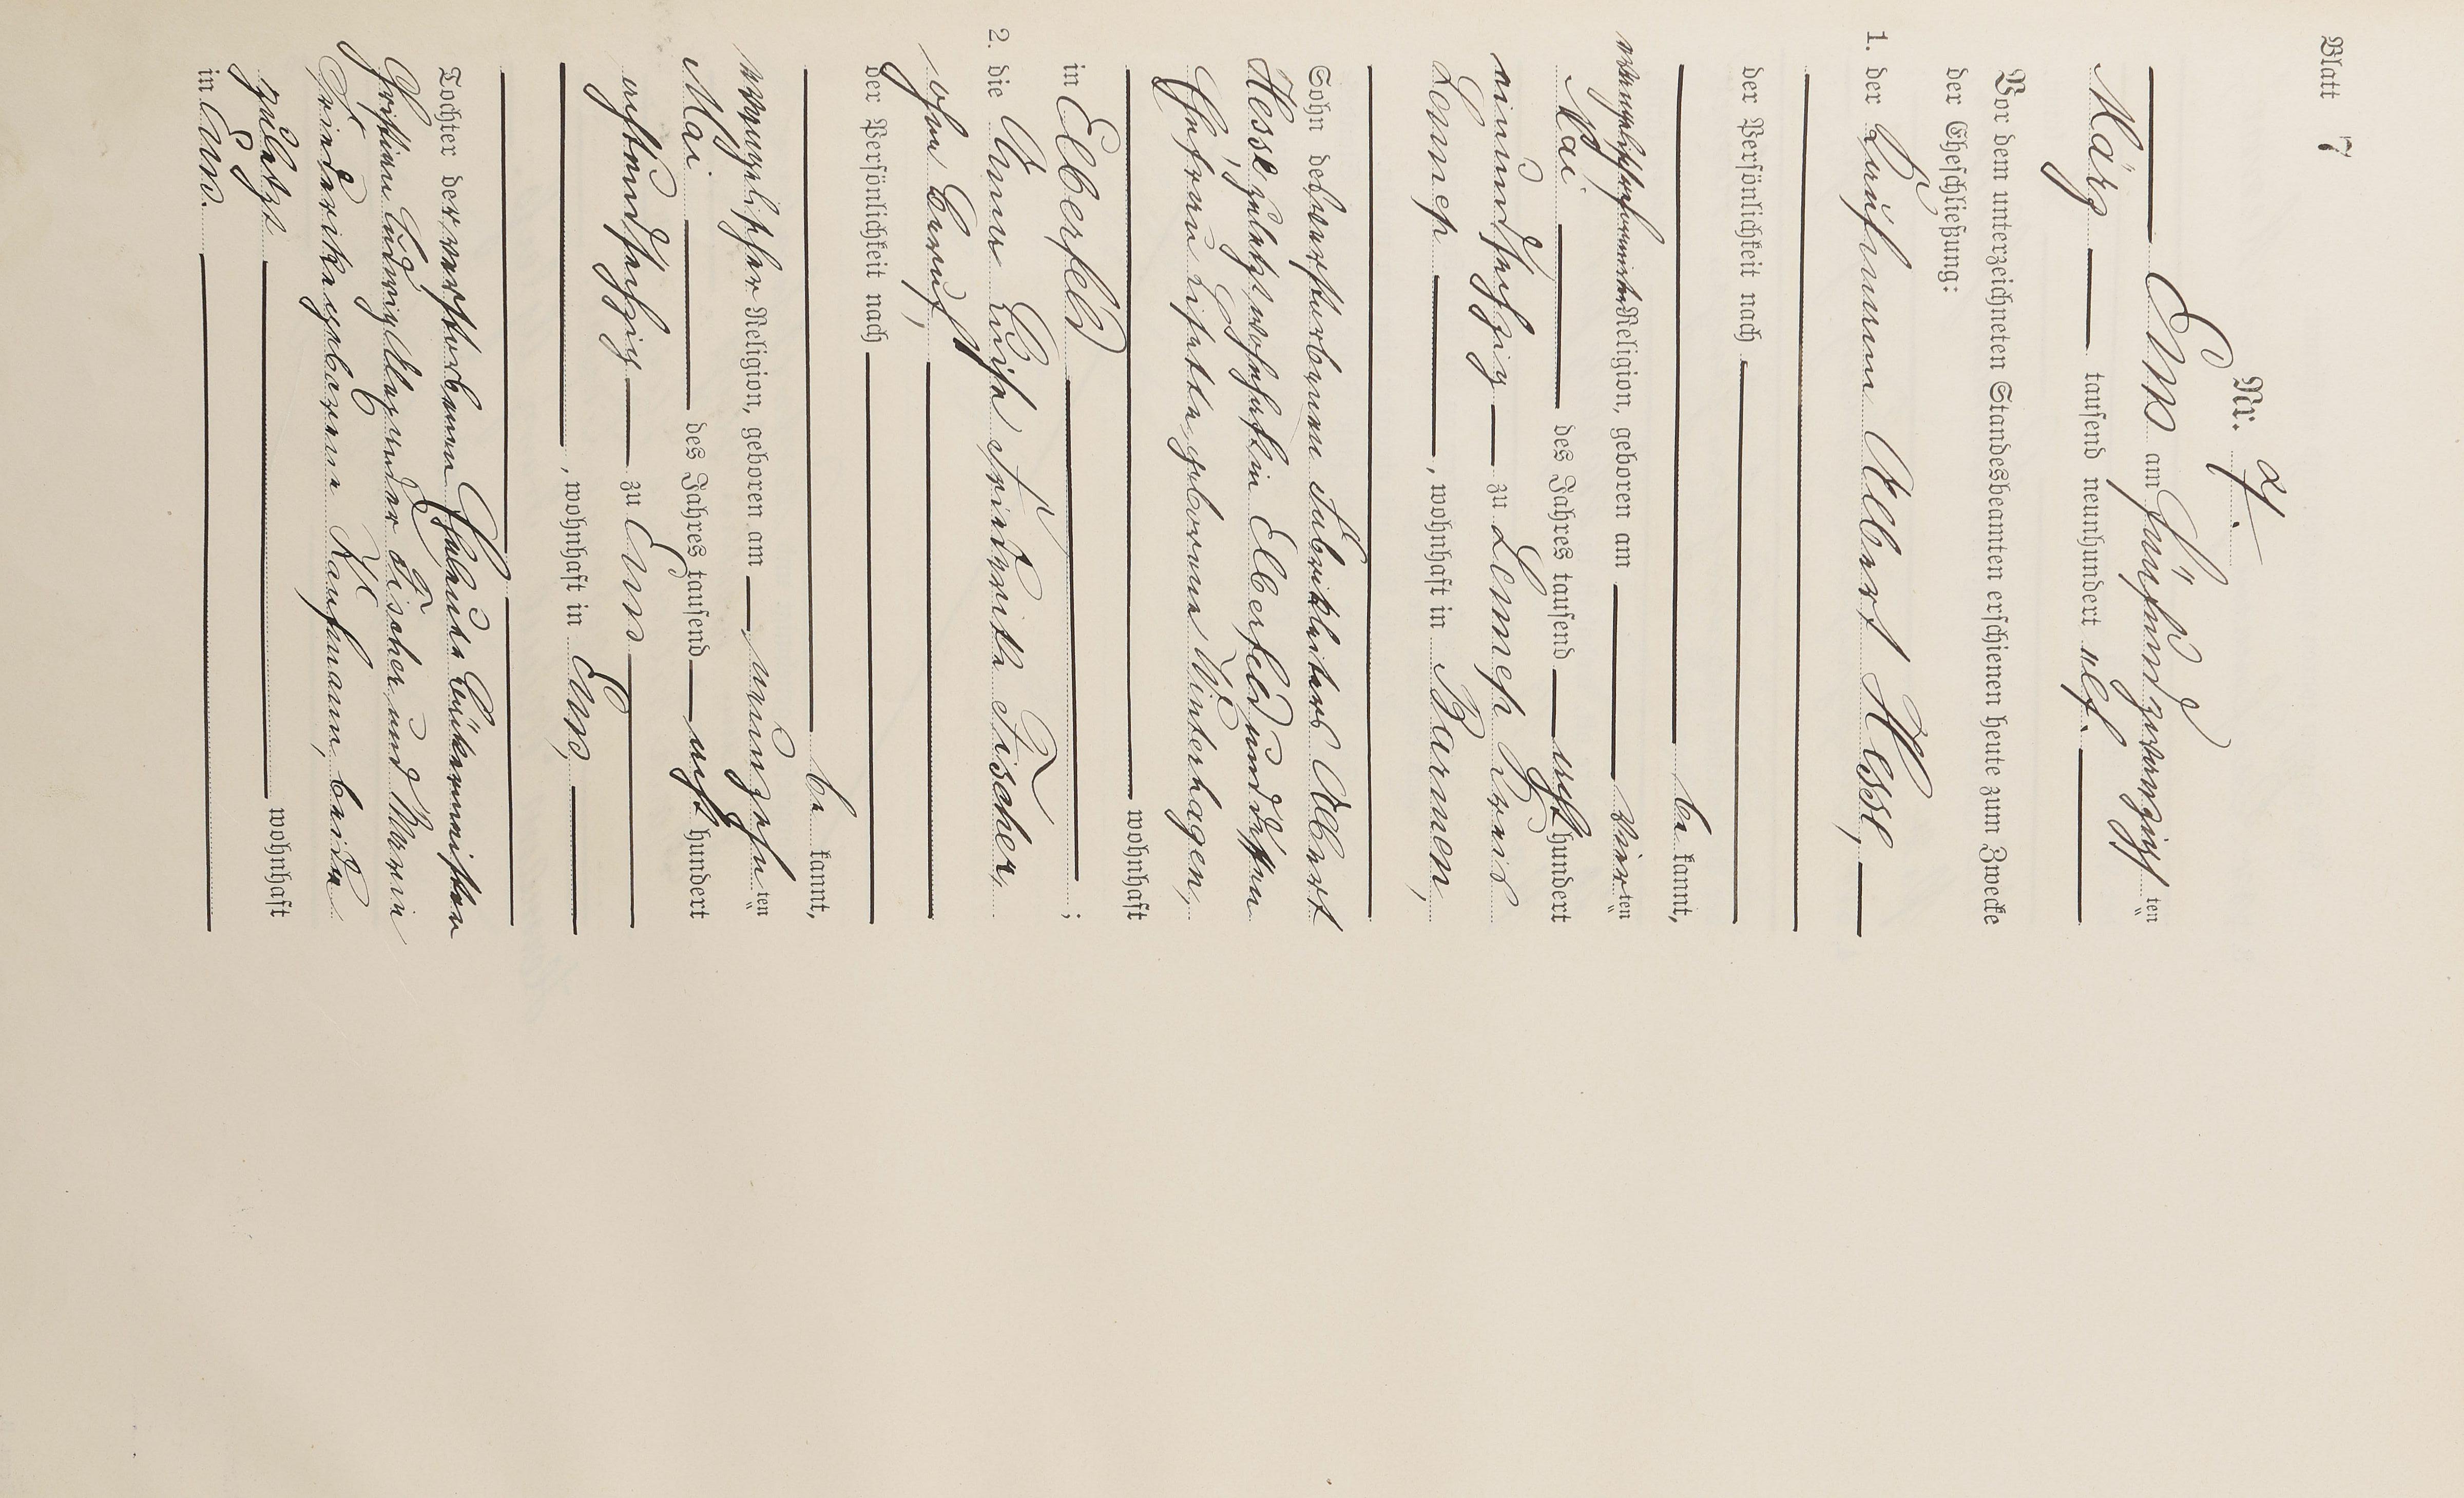 Blatt 7
Nr. 4.
Ems am fünfundzwanzigsten
März tausend neunhundert elf.
Vor dem unterzeichneten Standesbeamten erschienen heute zum Zwecke
der Eheschließung:
1. der Kaufmann Albert Hesse,
der Persönlichkeit nach
be kannt,
Religion, geboren am vierten
Mai des Jahres tausend acht hundert
einundsechzig zu Lennep Kreis
Lennep, wohnhaft in Barmen,
Sohn des verstorbenen Fabrikleiters Albert
Hesse, zuletzt wohnhaft in Elberfeld und dessen
Ehefrau Lisette geborene Winterhagen,
wohnhaft
in Elberfeld;
2. die Anna Luise Friederike Fischer,
ohne Beruf,
der Persönlichkeit nach
be kannt,
evangelischer Religion, geboren am neunzehnten
Mai des Jahres tausend acht hundert
achtundsechzig zu Ems
, wohnhaft in Ems,
Tochter der verstorbenen Eheleute
Ludwig Alexander Fischer und Marie
Friederike geborene Kaufmann, beide
zuletzt wohnhaft
in Ems.